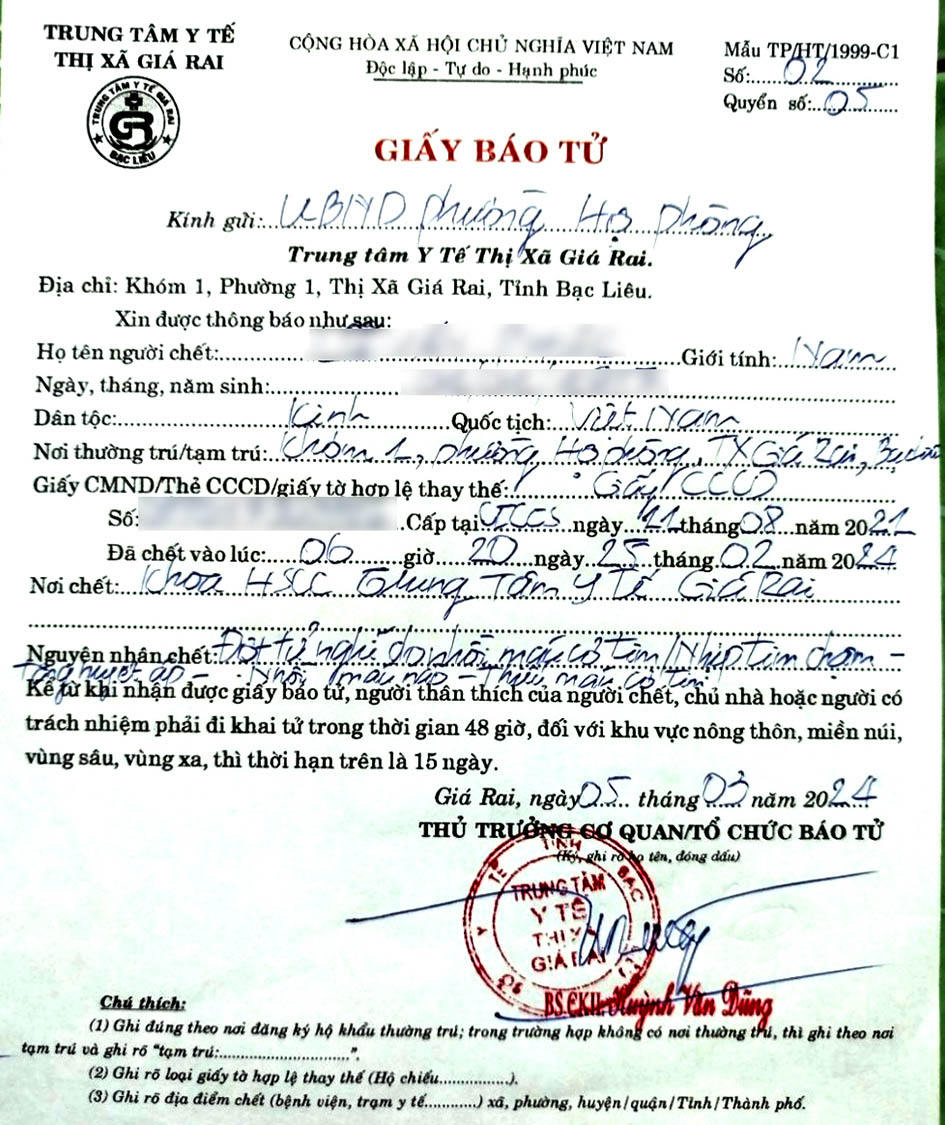 TRUNG TÂM Y TẾ
THỊ XÃ GIÁ RAI
TRUNG TÂM Y TẾ GIÁ RAI
GR
BẠC LIÊU
CỘNG HÒA XÃ HỘI CHỦ NGHĨA VIỆT NAM
Độc lập - Tự do - Hạnh phúc
Mẫu TP/HT/1999-C1
Số:.....02.....
Quyển số:..05.....
GIẤY BÁO TỬ
Kính gửi:..UBND phường Hộ Phòng
Trung tâm Y Tế Thị Xã Giá Rai.
Địa chỉ: Khóm 1, Phường 1, Thị Xã Giá Rai, Tỉnh Bạc Liêu.
Xin được thông báo như sau:
Họ tên người chết:.......... Giới tính: Nam
Ngày, tháng, năm sinh:..........
Dân tộc: Kinh Quốc tịch: Việt Nam
Nơi thường trú/tạm trú: Khóm 1, phường Hộ phòng, TX Giá Rai,
Giấy CMND/Thẻ CCCD/giấy tờ hợp lệ thay thế: CCCD
Số: .Cấp tại ngày 11 tháng 08 năm 2021
Đã chết vào lúc: 06 giờ 20 ngày 25 tháng 02 năm 2024
Nơi chết: Khoa HSCC Trung Tâm Y Tế Giá Rai
Nguyên nhân chết: Đột tử nghĩ do nhồi máu cơ tim/Nhịp tim chậm -
Tăng huyết áp - Nhồi máu não - Thiếu máu cơ tim
Kể từ khi nhận được giấy báo tử, người thân thích của người chết, chủ nhà hoặc người có
trách nhiệm phải đi khai tử trong thời gian 48 giờ, đối với khu vực nông thôn, miền núi,
vùng sâu, vùng xa, thì thời hạn trên là 15 ngày.
Giá Rai, ngày 05 tháng 03 năm 2024
THỦ TRƯỞNG CƠ QUAN/TỔ CHỨC BÁO TỬ
(Ký, ghi rõ họ tên, đóng dấu)
Y TẾ TỈNH BẠC
TRUNG TÂM
Y TẾ
THỊ XÃ
GIÁ RAI
BS.CKII. Huỳnh Văn Dũng
Chú thích:
(1) Ghi đúng theo nơi đăng ký hộ khẩu thường trú; trong trường hợp không có nơi thường trú, thì ghi theo nơi
tạm trú và ghi rõ “tạm trú:...............................”.
(2) Ghi rõ loại giấy tờ hợp lệ thay thế (Hộ chiếu.................).
(3) Ghi rõ địa điểm chết (bệnh viện, trạm y tế............) xã, phường, huyện/quận/Tỉnh/Thành phố.